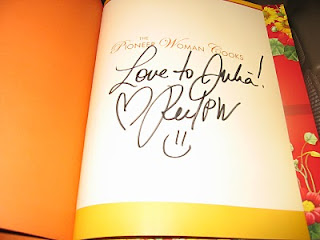 THE
PIONEER WOMAN COOKS
Love to Julia!
Ree/PW